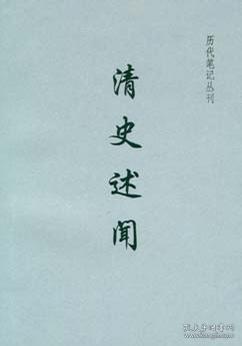 历代笔记丛刊
清史述闻